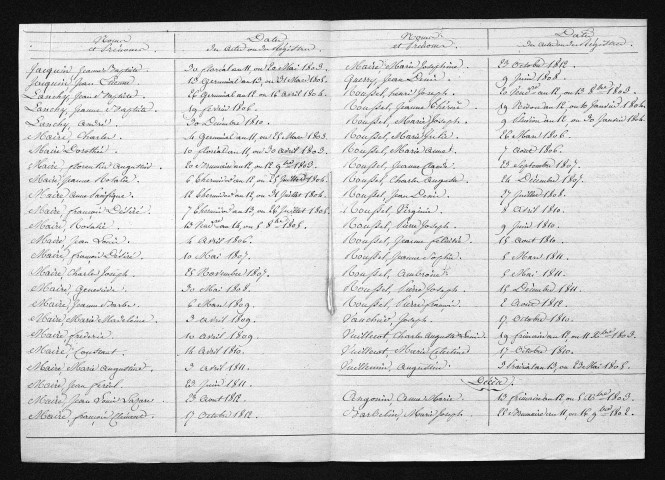 Noms et Prénoms.
Date des Actes ou des Registres.
Jacquin, Jeanne Baptiste 30 floréal an 11, ou 20 Mai 1803.
Jacquin, Jean Etienne 10 Germinal an 13, ou 31 Mars 1805.
Lanchy, Jeanne Baptiste 26 Germinal an 12, ou 16 Avril 1804.
Lanchy, Jeanne Baptiste 19 février 1806.
Lanchy, André 20 Décembre 1810.
Maire, Charles 4 Germinal an 11, ou 25 Mars 1803.
Maire Dorothée 10 floréal an 11, ou 30 Avril 1803.
Maire, florentin Augustin 20 Brumaire an 12, ou 9bre 1803.
Maire Jeanne Rosalie 6 Thermidor an 12, ou 25 Juillet 1804.
Maire Anne Pacifique 12 Thermidor an 12, ou 31 Juillet 1804.
Maire, françois Désiré 7 Thermidor an 13, ou 26 Juillet 1805.
Maire, Rosalie 13 Vend.re an 14, ou 5 8bre 1805.
Maire, Jean Louis 4 Avril 1806.
Maire, françois Désiré 10 Mai 1807.
Maire Charles Joseph 25 Novembre 1807.
Maire, Geneviève 30 Mai 1808.
Maire, Jeanne Barbe 6 Mars 1809.
Maire Marie Madeleine 3 Avril 1809.
Maire, fréderic 10 Avril 1809.
Maire, Constant 14 Avril 1810.
Maire, Marie Augustine 3 Avril 1811.
Maire, Jean féréol 23 Juin 1811.
Maire, Jean Louis Lazare 23 Août 1812.
Maire, françois 17 Octobre 1812.
Noms et Prénoms.
Date des Actes ou des Registres.
Maire Marie Josephine 23 Octobre 1812.
Querry, Jean Denis 9 Juin 1808.
Roussel, Joseph
Roussel, Jeanne Thérèse
Roussel, Marie Joseph
Roussel, Marie 26 Mars 1806.
Roussel, Marie 17 Août 1806.
Roussel, Jeanne Claude 23 Septembre 1807.
Roussel, Charles Auguste 24 Décembre 1807.
Roussel, Jean Denis 27 Juillet 1808.
Roussel, Virginie 8 Avril 1810.
Roussel, Pierre Joseph 9 Juin 1810.
Roussel, Jeanne félicité 15 Août 1810.
Roussel, Jeanne Sophie 5 Mars 1811.
Roussel, Ambroise 5 Mai 1811.
Roussel, Pierre Joseph 15 Décembre 1811.
Roussel, Pierre françois 2 Août 1812.
Vauchier, Joseph 17 Octobre 1810.
Vuillemot, Charles Auguste 19 frimaire an 12, ou 11 Xbre 1803.
Vuillemot, Marie Célestine 17 Octobre 1810.
Vuillemin, Augustin 3 Prairial an 13, ou 23 Mai 1805.
Décès.
Angonin Anne Marie 13 frimaire an 12, ou 5 Xbre 1803.
Barbelin, Marie Joseph 25 Brumaire an 11, ou 16 9bre 1802.